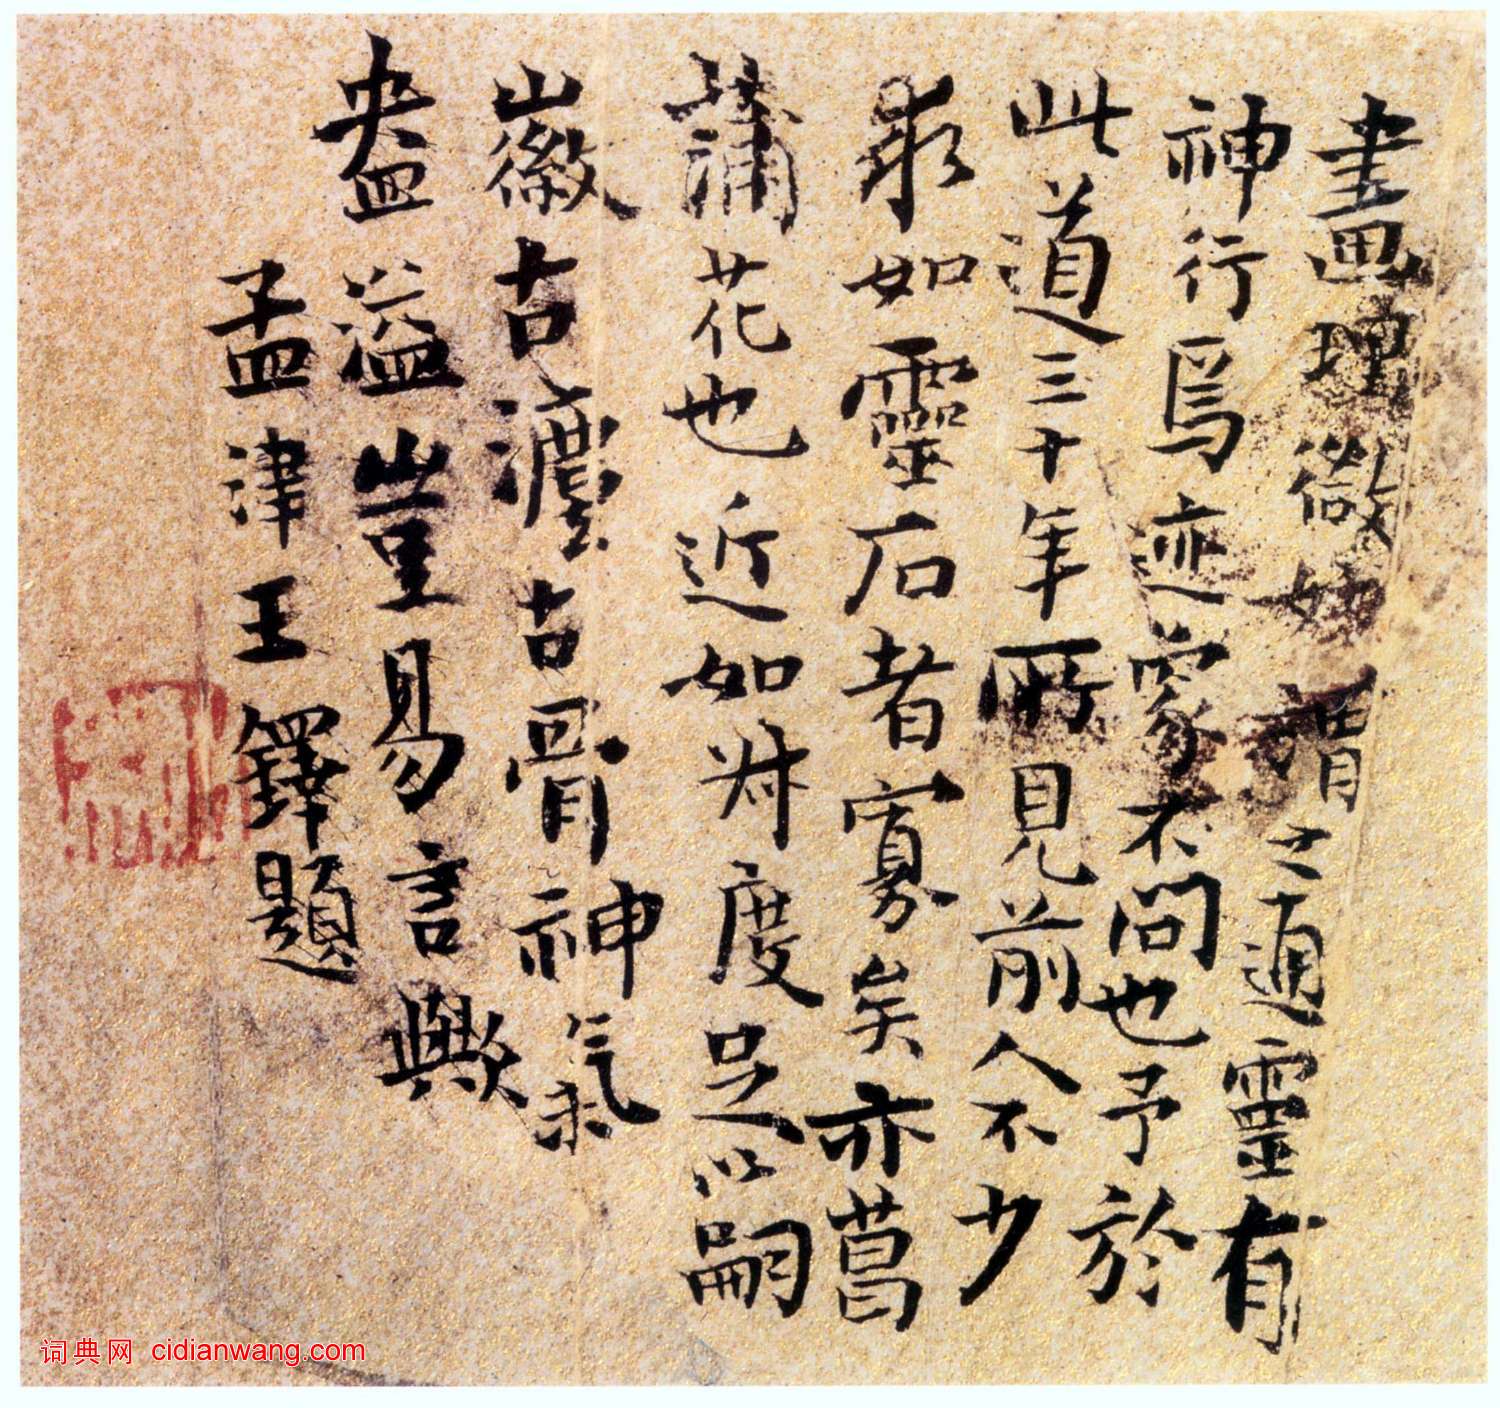 畫理微妙謂之通靈有
神行焉迹象不問也予於
此道三十年所見前人不少
求如靈石者寡矣亦菖
蒲花也近如叔度足以嗣
徽古瀍古骨神氣
盎溢豈易言歟
孟津王鐸題
词典网 cidianwang.com